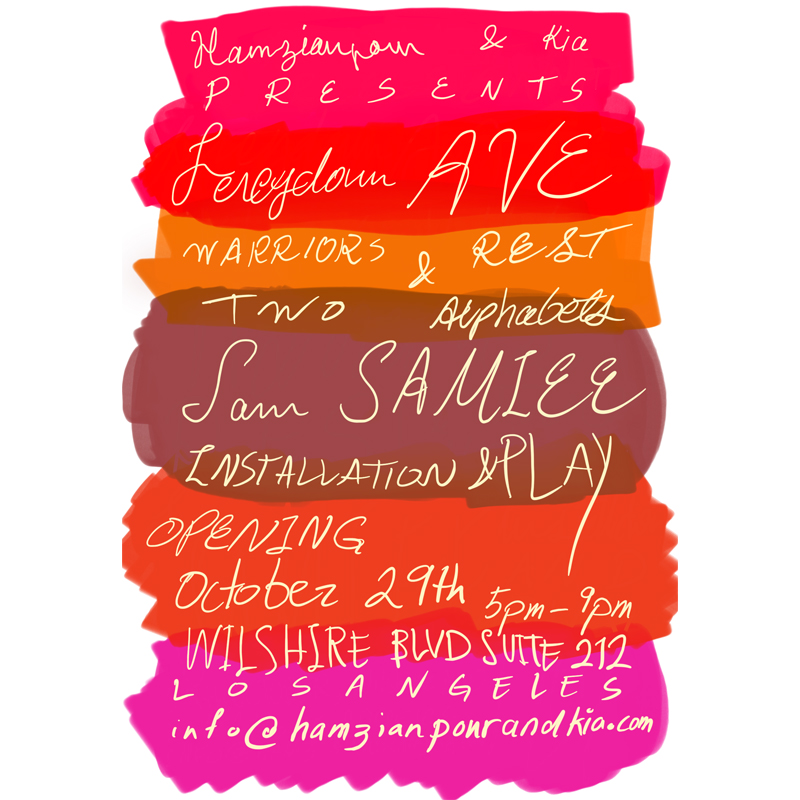 Hamzianpour & Kia
PRESENTS
Fereydoun AVE
WARRIORS & REST
TWO Alphabets
Sam SAMIEE
INSTALLATION & PLAY
OPENING
October 29th 5pm - 9pm
WILSHIRE BLVD SUITE 212
LOS ANGELES
info@hamzianpourandkia.com